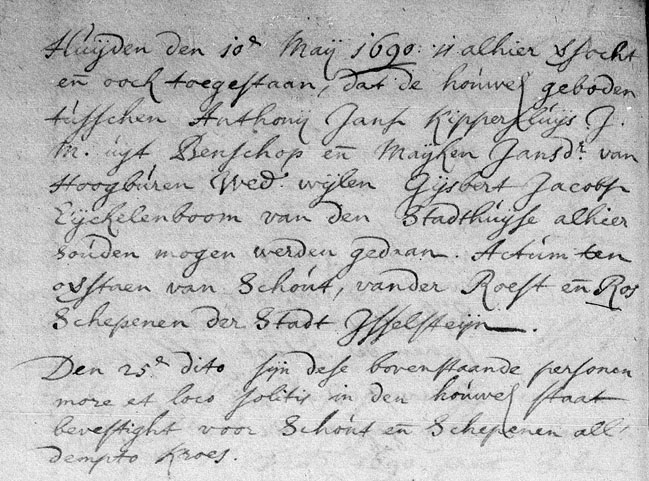 Huijden den 10e Maij 1690: is alhier vsocht
en̄ oock toegestaan, dat de houwel geboden
tusschen Anthonij Jansz Kippersluijs J.
M. uijt Benschop en̄ Maijken Jansdr. van
Hoogburen Wed. wijlen Gijsbert Jacobsz
Eijckelenboom van den Stadthuijse alhier
souden mogen werden gedaan. Actum ten
ovstaen van Schout, vander Roest en̄ Ros
Schepenen der Stadt Ysselsteijn.
Den 25e dito sijn dese bovenstaande personen
more et loco solitis in den houwel staat
bevestight voor Schout en̄ Schepenen all'
dempto Kroes.